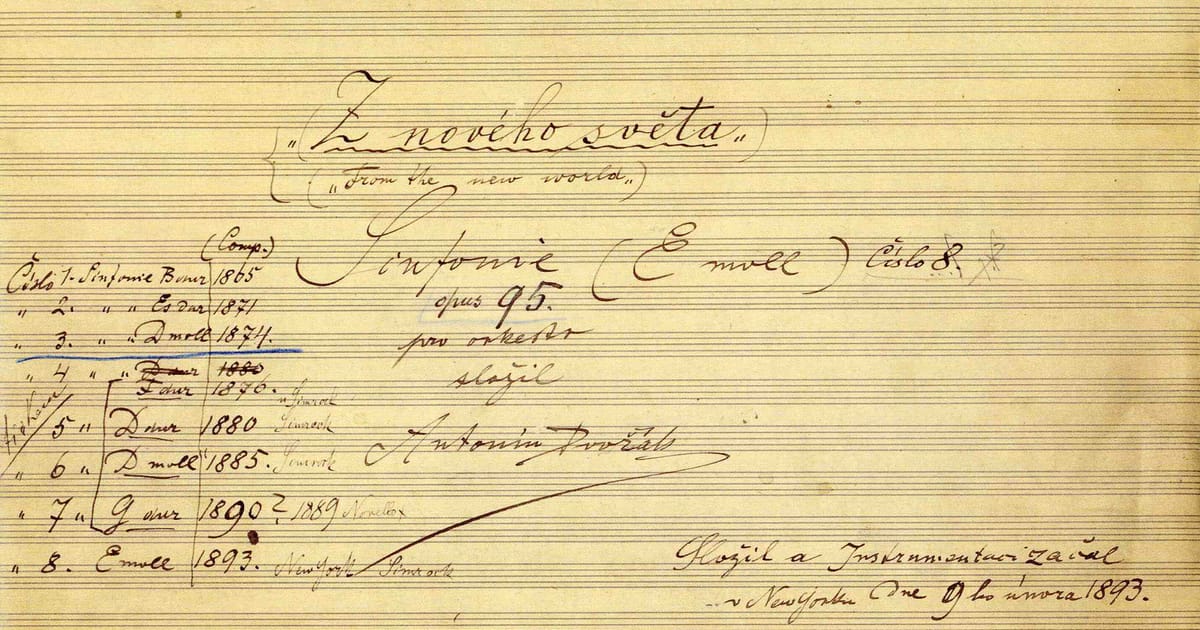 „Z nového světa„
(„From the new world„)
Sinfonie (E moll) Číslo 8.
opus 95.
pro orkestr
složil
Antonín Dvořák
(Comp.)
Číslo 1. Sinfonie B dur 1865
„ 2. „ „ Es dur 1871
„ 3. „ „ D moll 1874.
„ 4 „ „ D dur 1880
F dur 1876. Simrock
/5 „ D dur 1880 Simrock
„ 6 „ D moll 1885. Simrock
„ 7 „ G dur 1890? 1889 Novello
„ 8. E moll 1893. New York Simrock
Složil a Instrumentaci začal
v New Yorku dne 9ho února 1893.